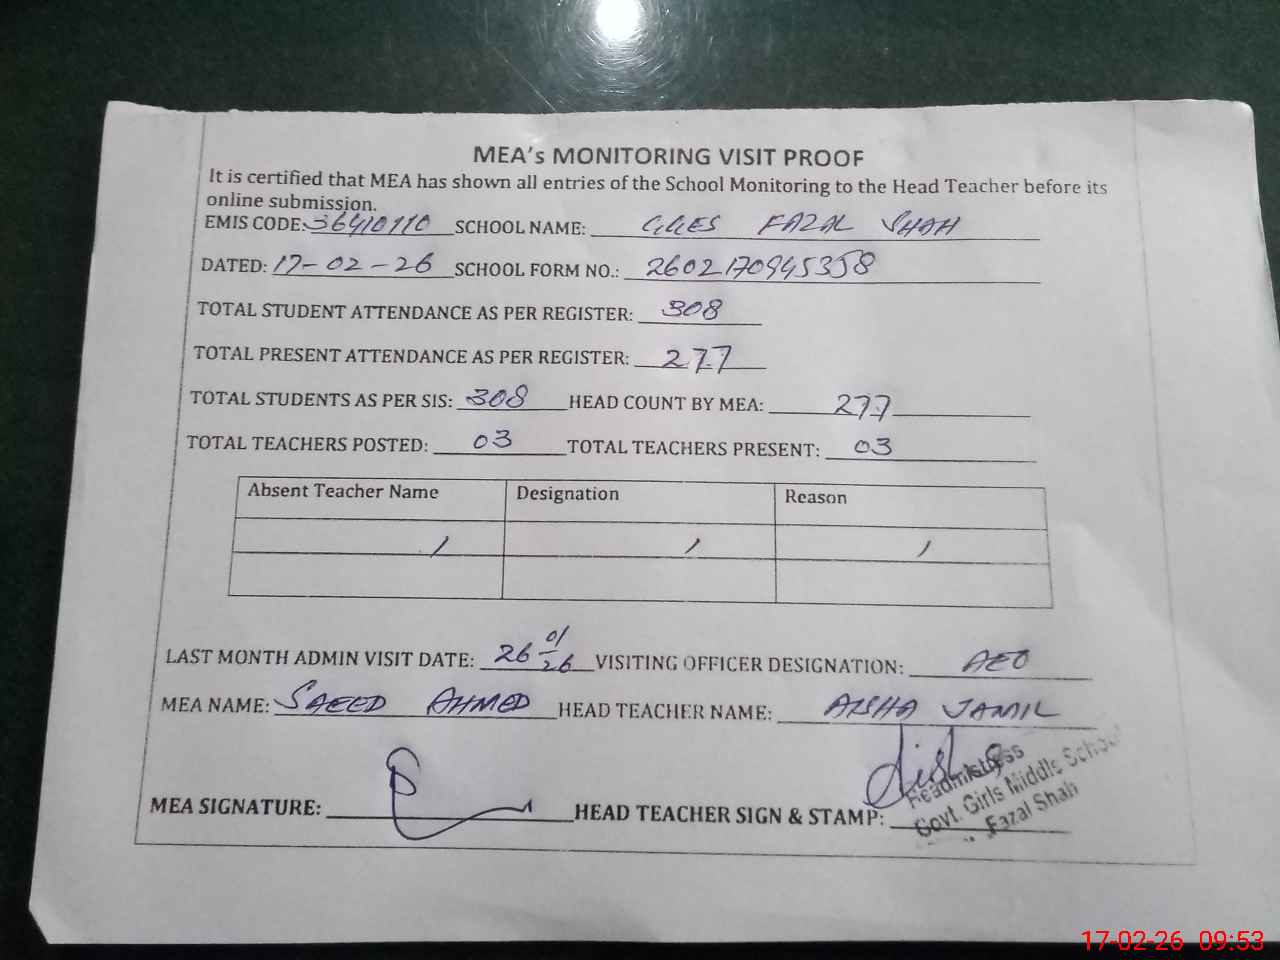 MEA's MONITORING VISIT PROOF
It is certified that MEA has shown all entries of the School Monitoring to the Head Teacher before its
online submission.
EMIS CODE: 36410110 SCHOOL NAME: GGES FAZAL SHAH
DATED: 17-02-26 SCHOOL FORM NO.: 2602170945358
TOTAL STUDENT ATTENDANCE AS PER REGISTER: 308
TOTAL PRESENT ATTENDANCE AS PER REGISTER: 277
TOTAL STUDENTS AS PER SIS: 308 HEAD COUNT BY MEA: 277
TOTAL TEACHERS POSTED: 03 TOTAL TEACHERS PRESENT: 03
Absent Teacher Name Designation Reason
/ / /
LAST MONTH ADMIN VISIT DATE: 26 01/26 VISITING OFFICER DESIGNATION: AEO
MEA NAME: SAEED AHMED HEAD TEACHER NAME: AISHA JAMIL
MEA SIGNATURE: HEAD TEACHER SIGN & STAMP:
Headmistress
Govt. Girls Middle School
Fazal Shah
17-02-26 09:53